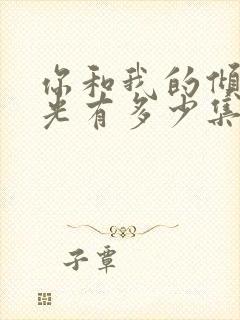 你和我的倾
光有多少集
子覃